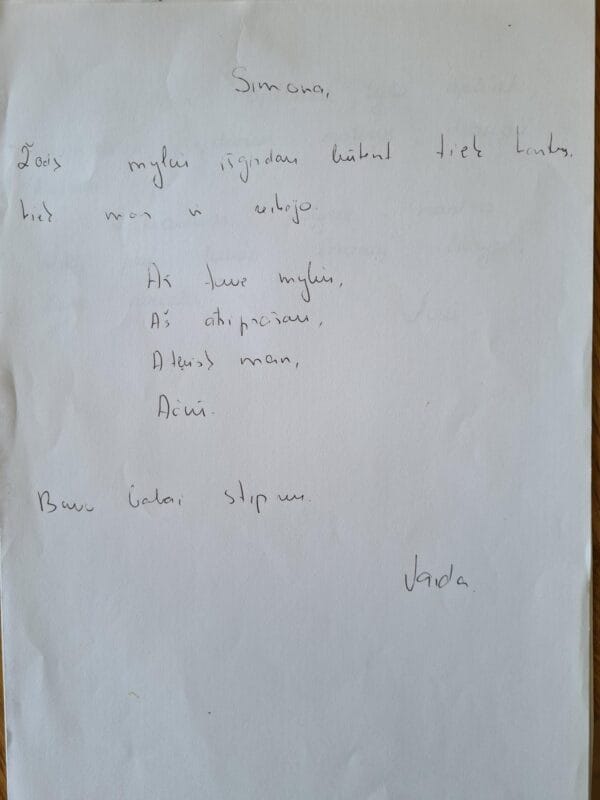 Simona,
Žodis myliu išgirdau būtent tiek kartų,
tiek man ir reikėjo.
Aš tave myliu,
Aš atsiprašau,
Atleisk man,
Ačiū.
Buvo labai stipru.
Vaida.